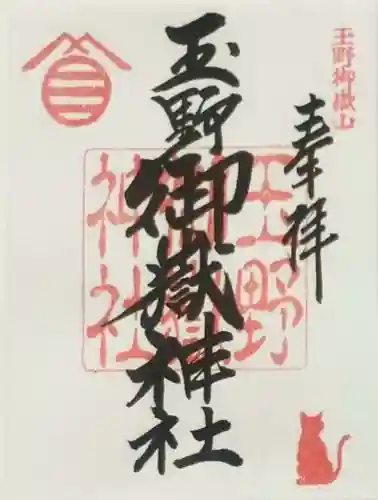 玉野御嶽山
奉拝
玉野御嶽神社
玉野御嶽神社